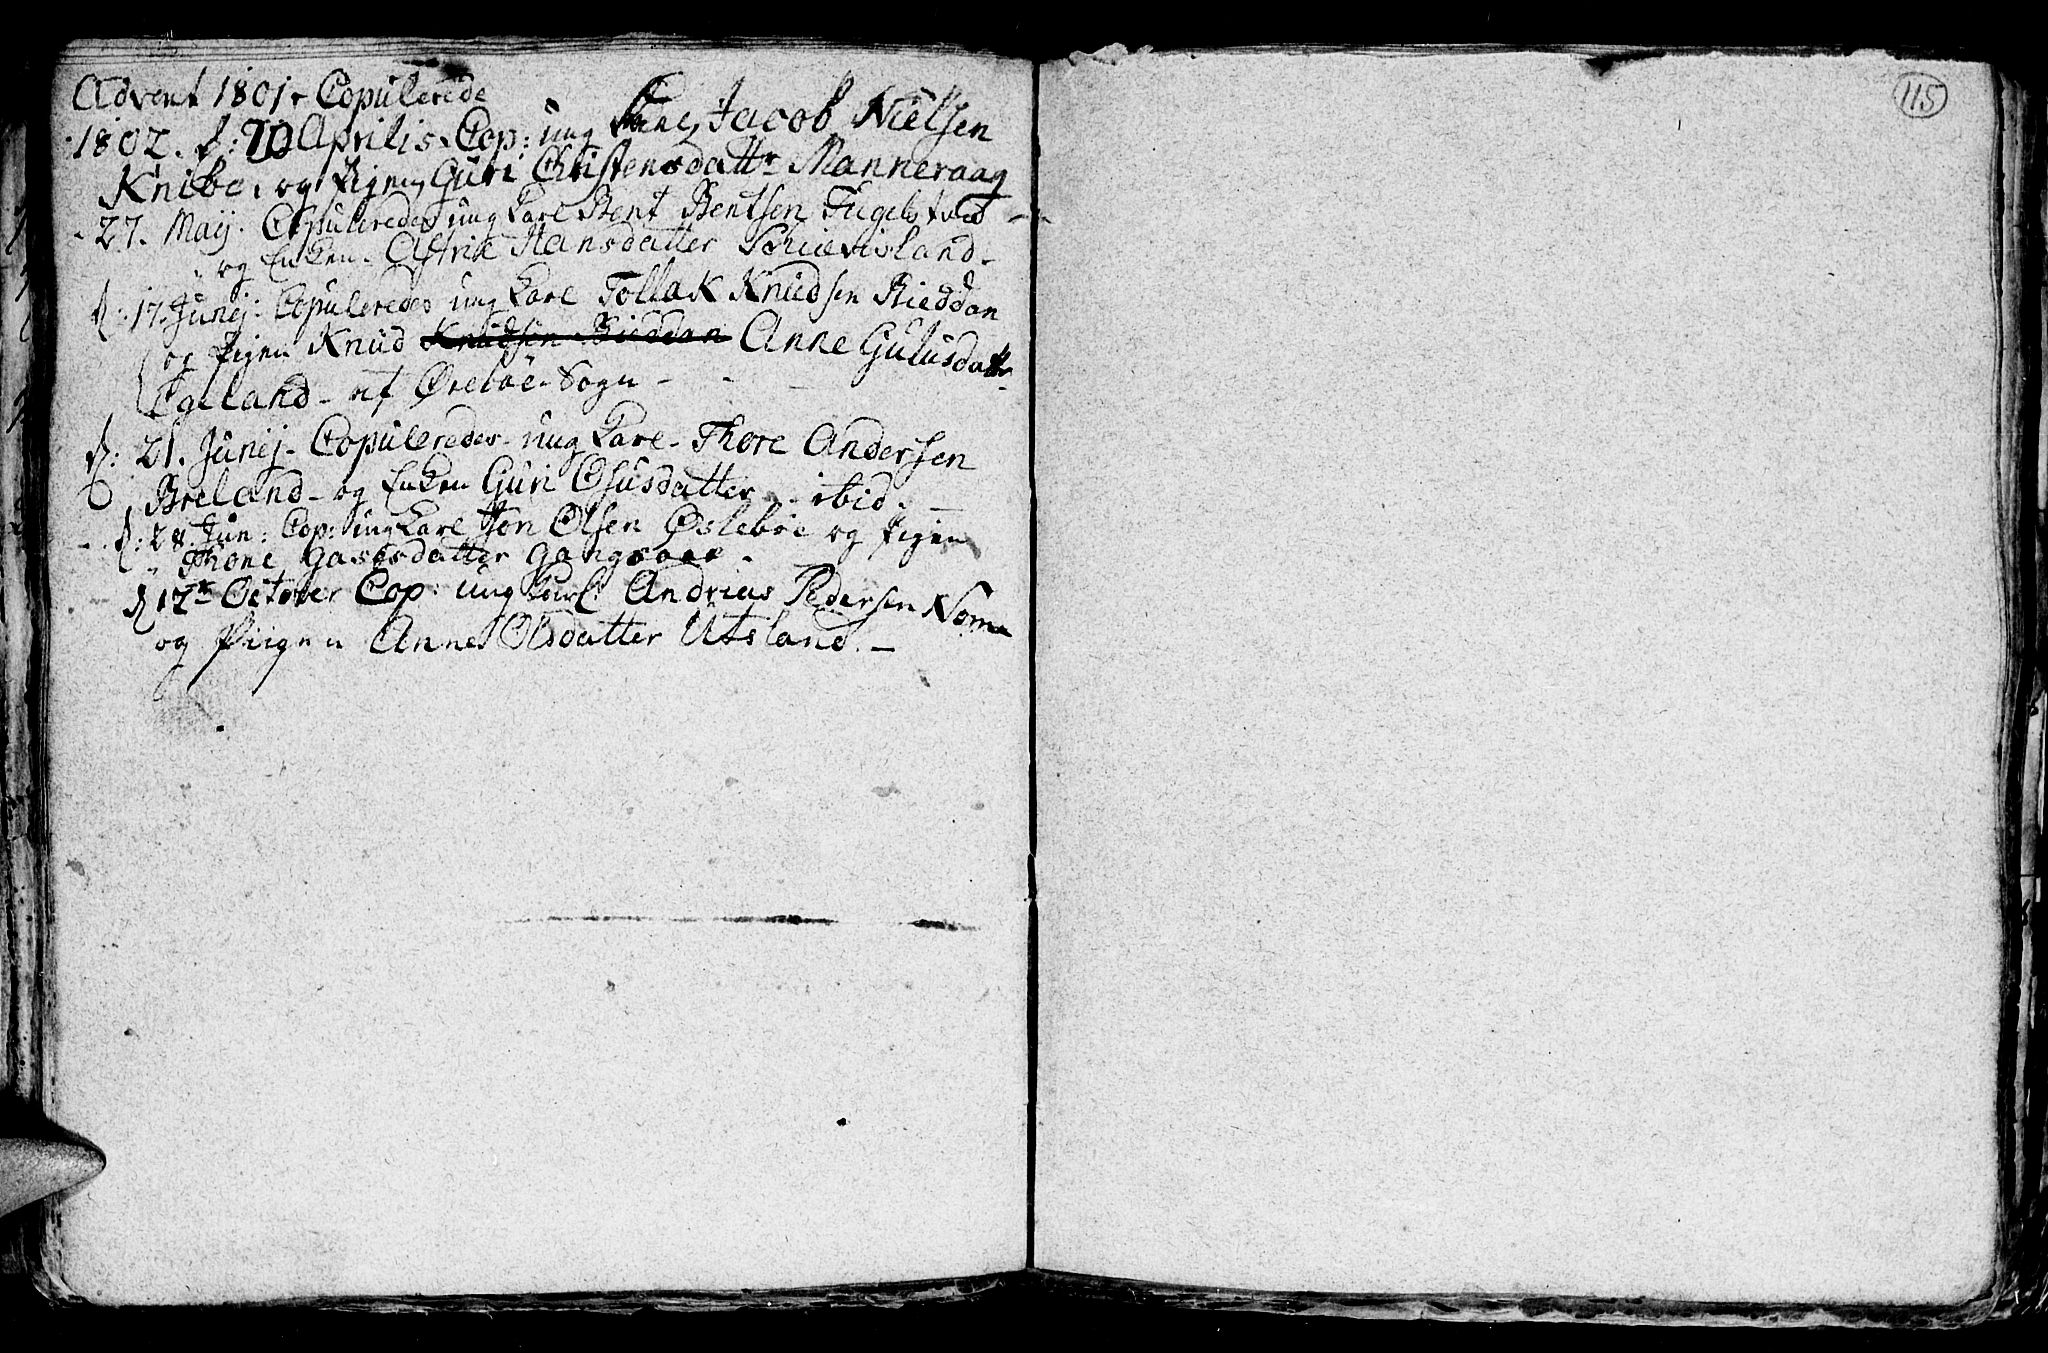 Advent 1801 Copulerede
1802. d: 20 Aprilis Cop: ung Karl Jacob Nielsen
Knibe, og Pigen Guri Christensdattr Manneraag
27. Maij. Copuleredes ung Karl Bent Bentsen Fugelstved
og Enken Astrie Hansdatter Schievisland
d: 17. Junej: Copuleredes ung Karl Tollak Knudsen Rieddan
og Pigen Knud Knudsen Rieddan Anne Gulusdattr
Egeland - af Øreböe Sogn -
d: 21. Junej - Copuleredes - ung Karl - Thore Andersen
Breland - og Enken Guri Osusdatter - ibid. -
d: 28. Jun: Cop: ung Karl Jon Olsen Øslebøe og Pigen
Thone Gasesdatter Gangsaae -
d 17de October Cop: ung Karl Andrias Pedersen Nome
og Piigen Anne Olsdatter Utsland. -
115